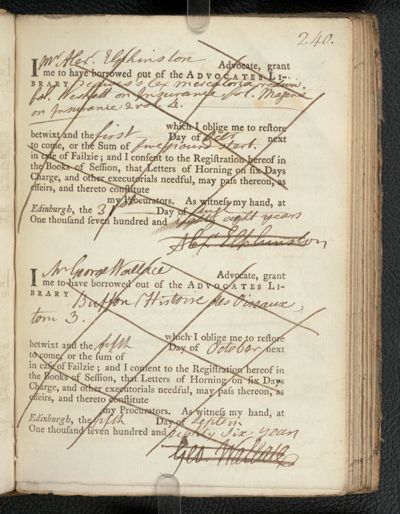 240.
I Mr Alex. Elphinston Advocate, grant
me to have borrowed out of the ADVOCATES LI-
BRARY Jacques's Lex mercatoria rediviva
fol. Weskett on Insurance fol. Magens
on Insurance 2 vol. 4.
which I oblige me to restore
betwixt and the first Day of Octr next
to come, or the Sum of five pound sterl.
in case of Failzie; and I consent to the Registration hereof in
the Books of Session, that Letters of Horning on six Days
Charge, and other executorials needful, may pass thereon, as
effeirs, and thereto constitute
my Procurators. As witness my hand, at
Edinburgh, the 3 Day of
One thousand seven hundred and eighty eight years
Alexr Elphinston
I Mr George Wallace Advocate, grant
me to have borrowed out of the ADVOCATES LI-
BRARY Buffon Histoire des Oiseaux,
tom 3.
which I oblige me to restore
betwixt and the fifth Day of October next
to come, or the sum of
in case of Failzie; and I consent to the Registration hereof in
the Books of Session, that Letters of Horning on six Days
Charge, and other executorials needful, may pass thereon, as
effeirs, and thereto constitute
my Procurators. As witness my hand, at
Edinburgh, the fifth Day of Septm
One thousand seven hundred and eighty six years
Geo. Wallace